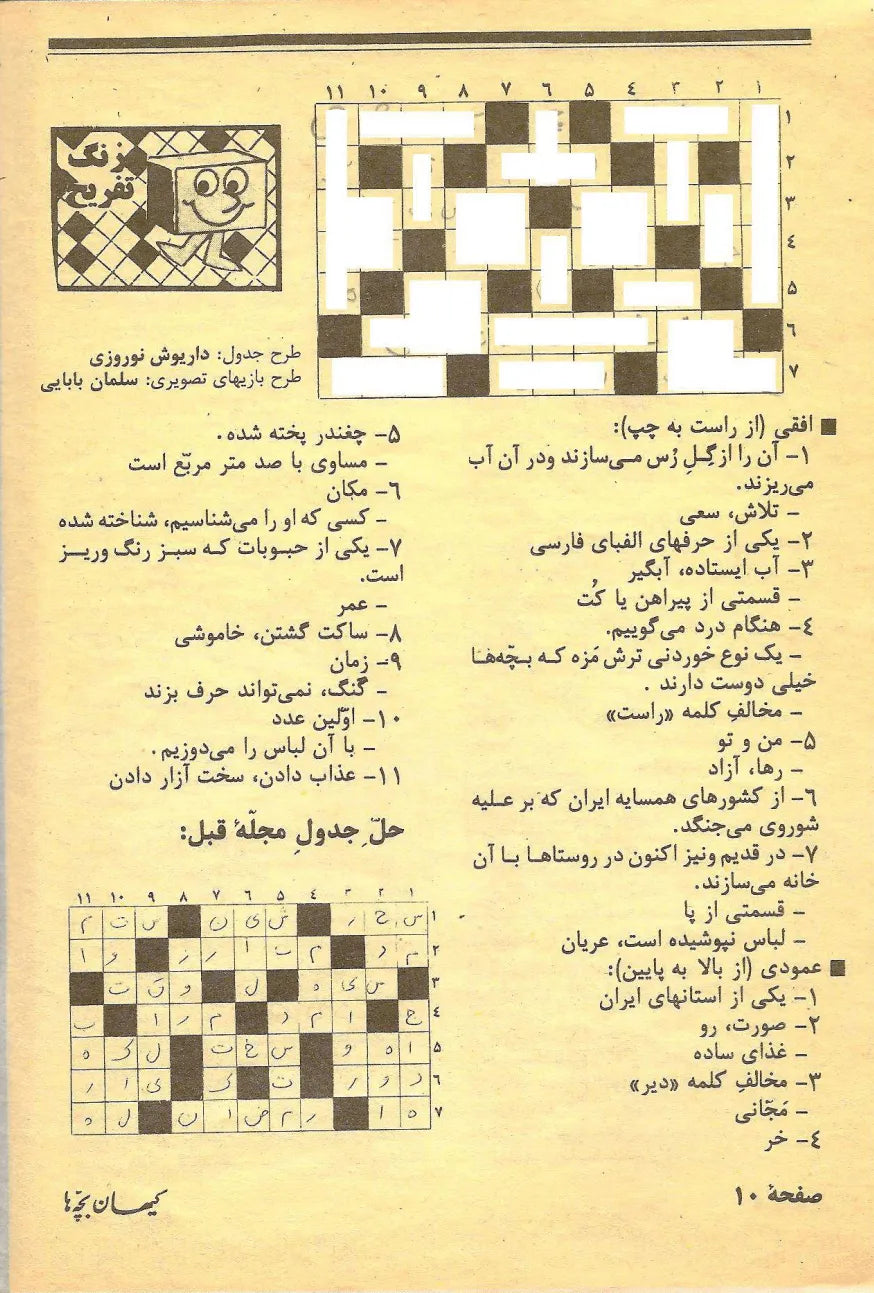 ۱۱ ۱۰ ۹ ۸ ۷ ۶ ۵ ٤ ۳ ۲ ۱
۱
۲
۳
٤
۵
٦
۷
زنگ
تفریح
طرح جدول: داریوش نوروزی
طرح بازیهای تصویری: سلمان بابایی
افقی (از راست به چپ):
۱- آن را از گِلِ رُس می‌سازند ودر آن آب
می‌ریزند.
- تلاش، سعی
۲- یکی از حرفهای الفبای فارسی
۳- آب ایستاده، آبگیر
- قسمتی از پیراهن یا کُت
٤- هنگام درد می‌گوییم.
- یک نوع خوردنی ترش مَزه که بچّه‌ها
خیلی دوست دارند .
- مخالفِ کلمه «راست»
۵- من و تو
- رها، آزاد
٦- از کشورهای همسایه ایران که بر علیه
شوروی می‌جنگد.
۷- در قدیم ونیز اکنون در روستاها با آن
خانه می‌سازند.
- قسمتی از پا
- لباس نپوشیده است، عریان
عمودی (از بالا به پایین):
۱- یکی از استانهای ایران
۲- صورت، رو
- غذای ساده
۳- مخالفِ کلمه «دیر»
- مَجّانی
٤- خر
۵- چغندر پخته شده.
- مساوی با صد متر مربّع است
٦- مکان
- کسی که او را می‌شناسیم، شناخته شده
۷- یکی از حبوبات که سبز رنگ وریز
است.
- عمر
۸- ساکت گشتن، خاموشی
۹- زمان
- گنگ، نمی‌تواند حرف بزند
۱۰- اوّلین عدد
- با آن لباس را می‌دوزیم.
۱۱- عذاب دادن، سخت آزار دادن
حلّ جدولِ مجلّهٔ قبل:
۱۱ ۱۰ ۹ ۸ ۷ ۶ ۵ ٤ ۳ ۲ ۱
۱ س ح ر ش ی ن س ت م
۲ م د م ت ا ر ز و ا
۳ س ی ا ه ل و ق ت
٤ ح ا م د م ر ا ب
۵ ا ه و س خ ت ل ک ه
٦ د و ر ت ک ی ا ر
۷ ه ا ر م ض ا ن ل ه
صفحهٔ ۱۰
کیهان بچّه‌ها